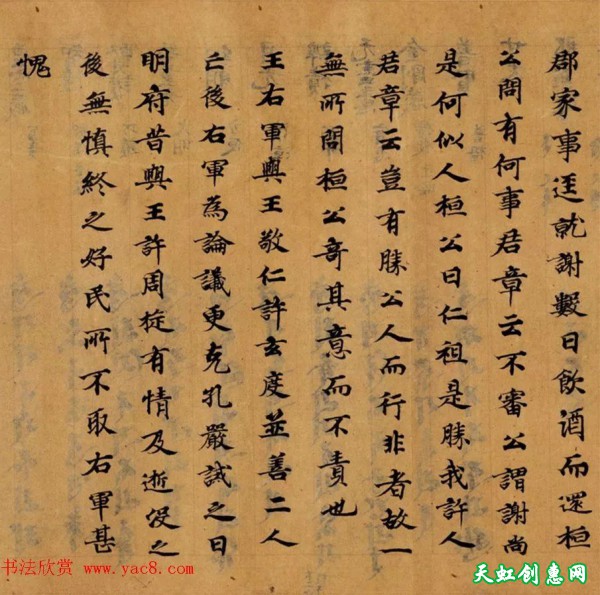 郡家事廷就謝數日飲酒而還桓
公問有何事君章云不審公謂謝尚
是何似人桓公曰仁祖是勝我許人
君章云豈有勝公人而行非者故一
無所問桓公奇其意而不責也
王右軍與王敬仁許玄度並善二人
亡後右軍為論議更克孔嚴誡之曰
明府昔與王許周旋有情及逝沒之
後無慎終之好民所不取右軍甚
愧
书法欣赏 www.yac8.com
天虹创惠网